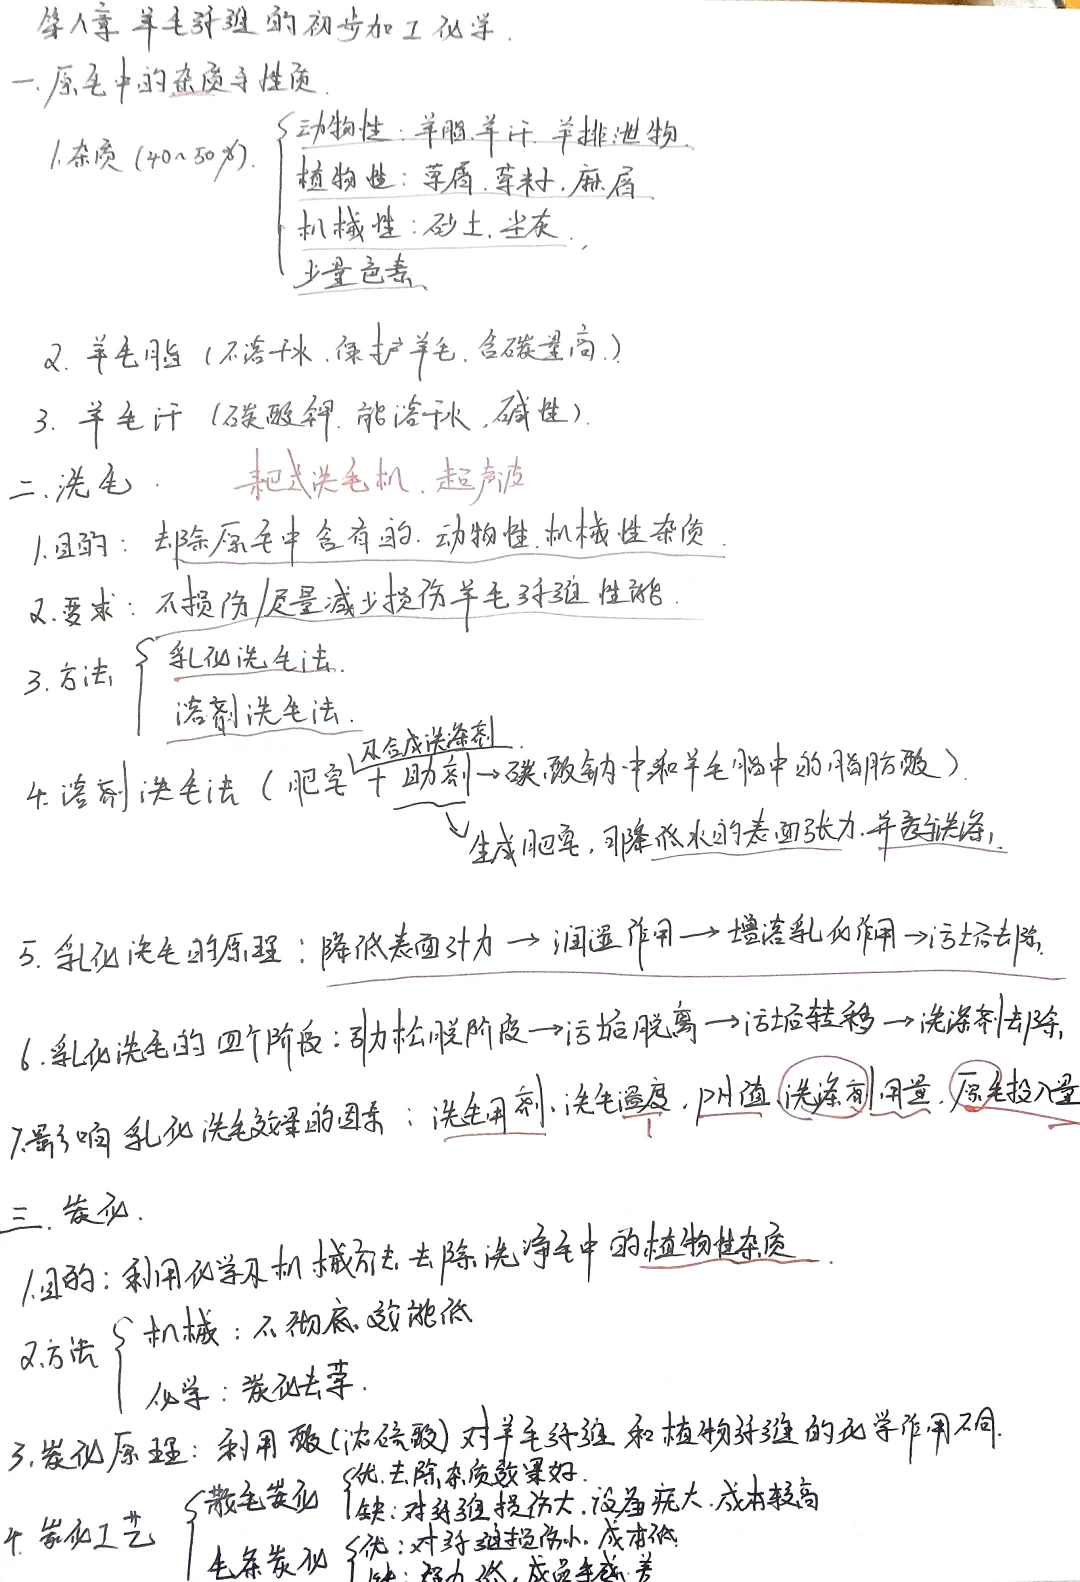 第八章 羊毛纤维的初步加工化学.
一.原毛中的杂质与性质.
1.杂质(40~50%).
动物性:羊脂.羊汗.羊排泄物.
植物性:草屑.草籽.麻屑
机械性:砂土.尘灰.
少量色素.
2.羊毛脂(不溶于水.保护羊毛.含碳量高.)
3.羊毛汗(碳酸钾.能溶于水.碱性).
二.洗毛. 耙式洗毛机.超声波
1.目的:去除原毛中含有的.动物性.机械性杂质.
2.要求:不损伤/尽量减少损伤羊毛纤维性能.
3.方法
乳化洗毛法.
溶剂洗毛法.
及合成洗涤剂
4.溶剂洗毛法(肥皂+助剂→碳酸钠中和羊毛脂中的脂肪酸).
生成肥皂,可降低水的表面张力.并洗涤.
5.乳化洗毛的原理:降低表面张力→润湿作用→增溶乳化作用→污垢去除.
6.乳化洗毛的四个阶段:引力松脱阶段→污垢脱离→污垢转移→洗涤剂去除.
7.影响乳化洗毛效果的因素:洗毛用剂.洗毛温度.PH值.洗涤剂用量.原毛投入量
三.炭化.
1.目的:利用化学及机械方法去除洗净毛中的植物性杂质.
2.方法
机械:不彻底.效能低
化学:炭化去草.
3.炭化原理:利用酸(浓硫酸)对羊毛纤维和植物纤维的化学作用不同.
4.炭化工艺
散毛炭化
优:去除杂质效果好.
缺:对纤维损伤大.设备庞大.成本较高
毛条炭化
优:对纤维损伤小.成本低
缺:强力低,